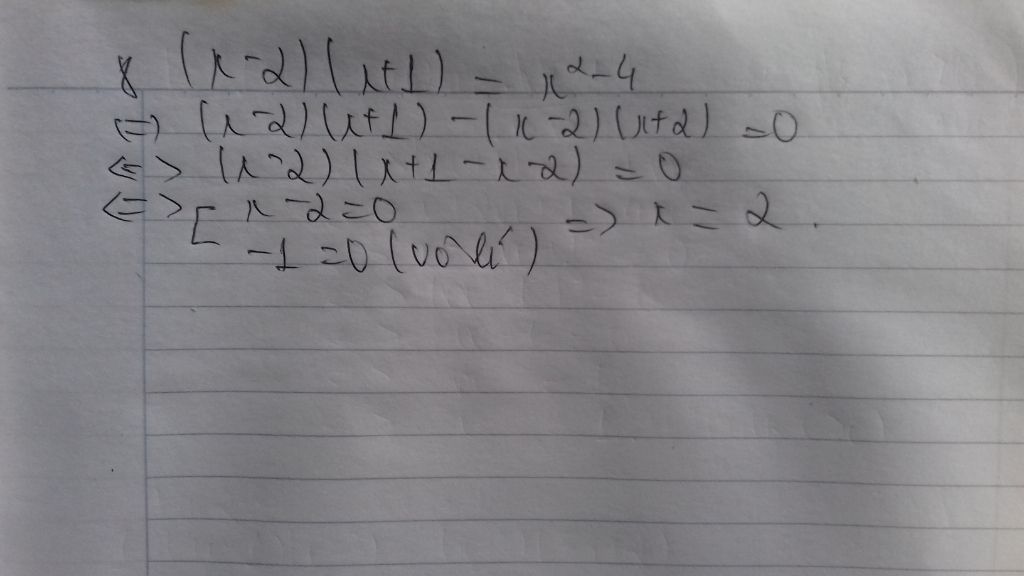 * (x-2)(x+1) = x²-4
<=> (x-2)(x+1) - (x-2)(x+2) = 0
<=> (x-2)(x+1-x-2) = 0
<=> [ x-2=0 => x = 2.
-1=0 (vô lí)